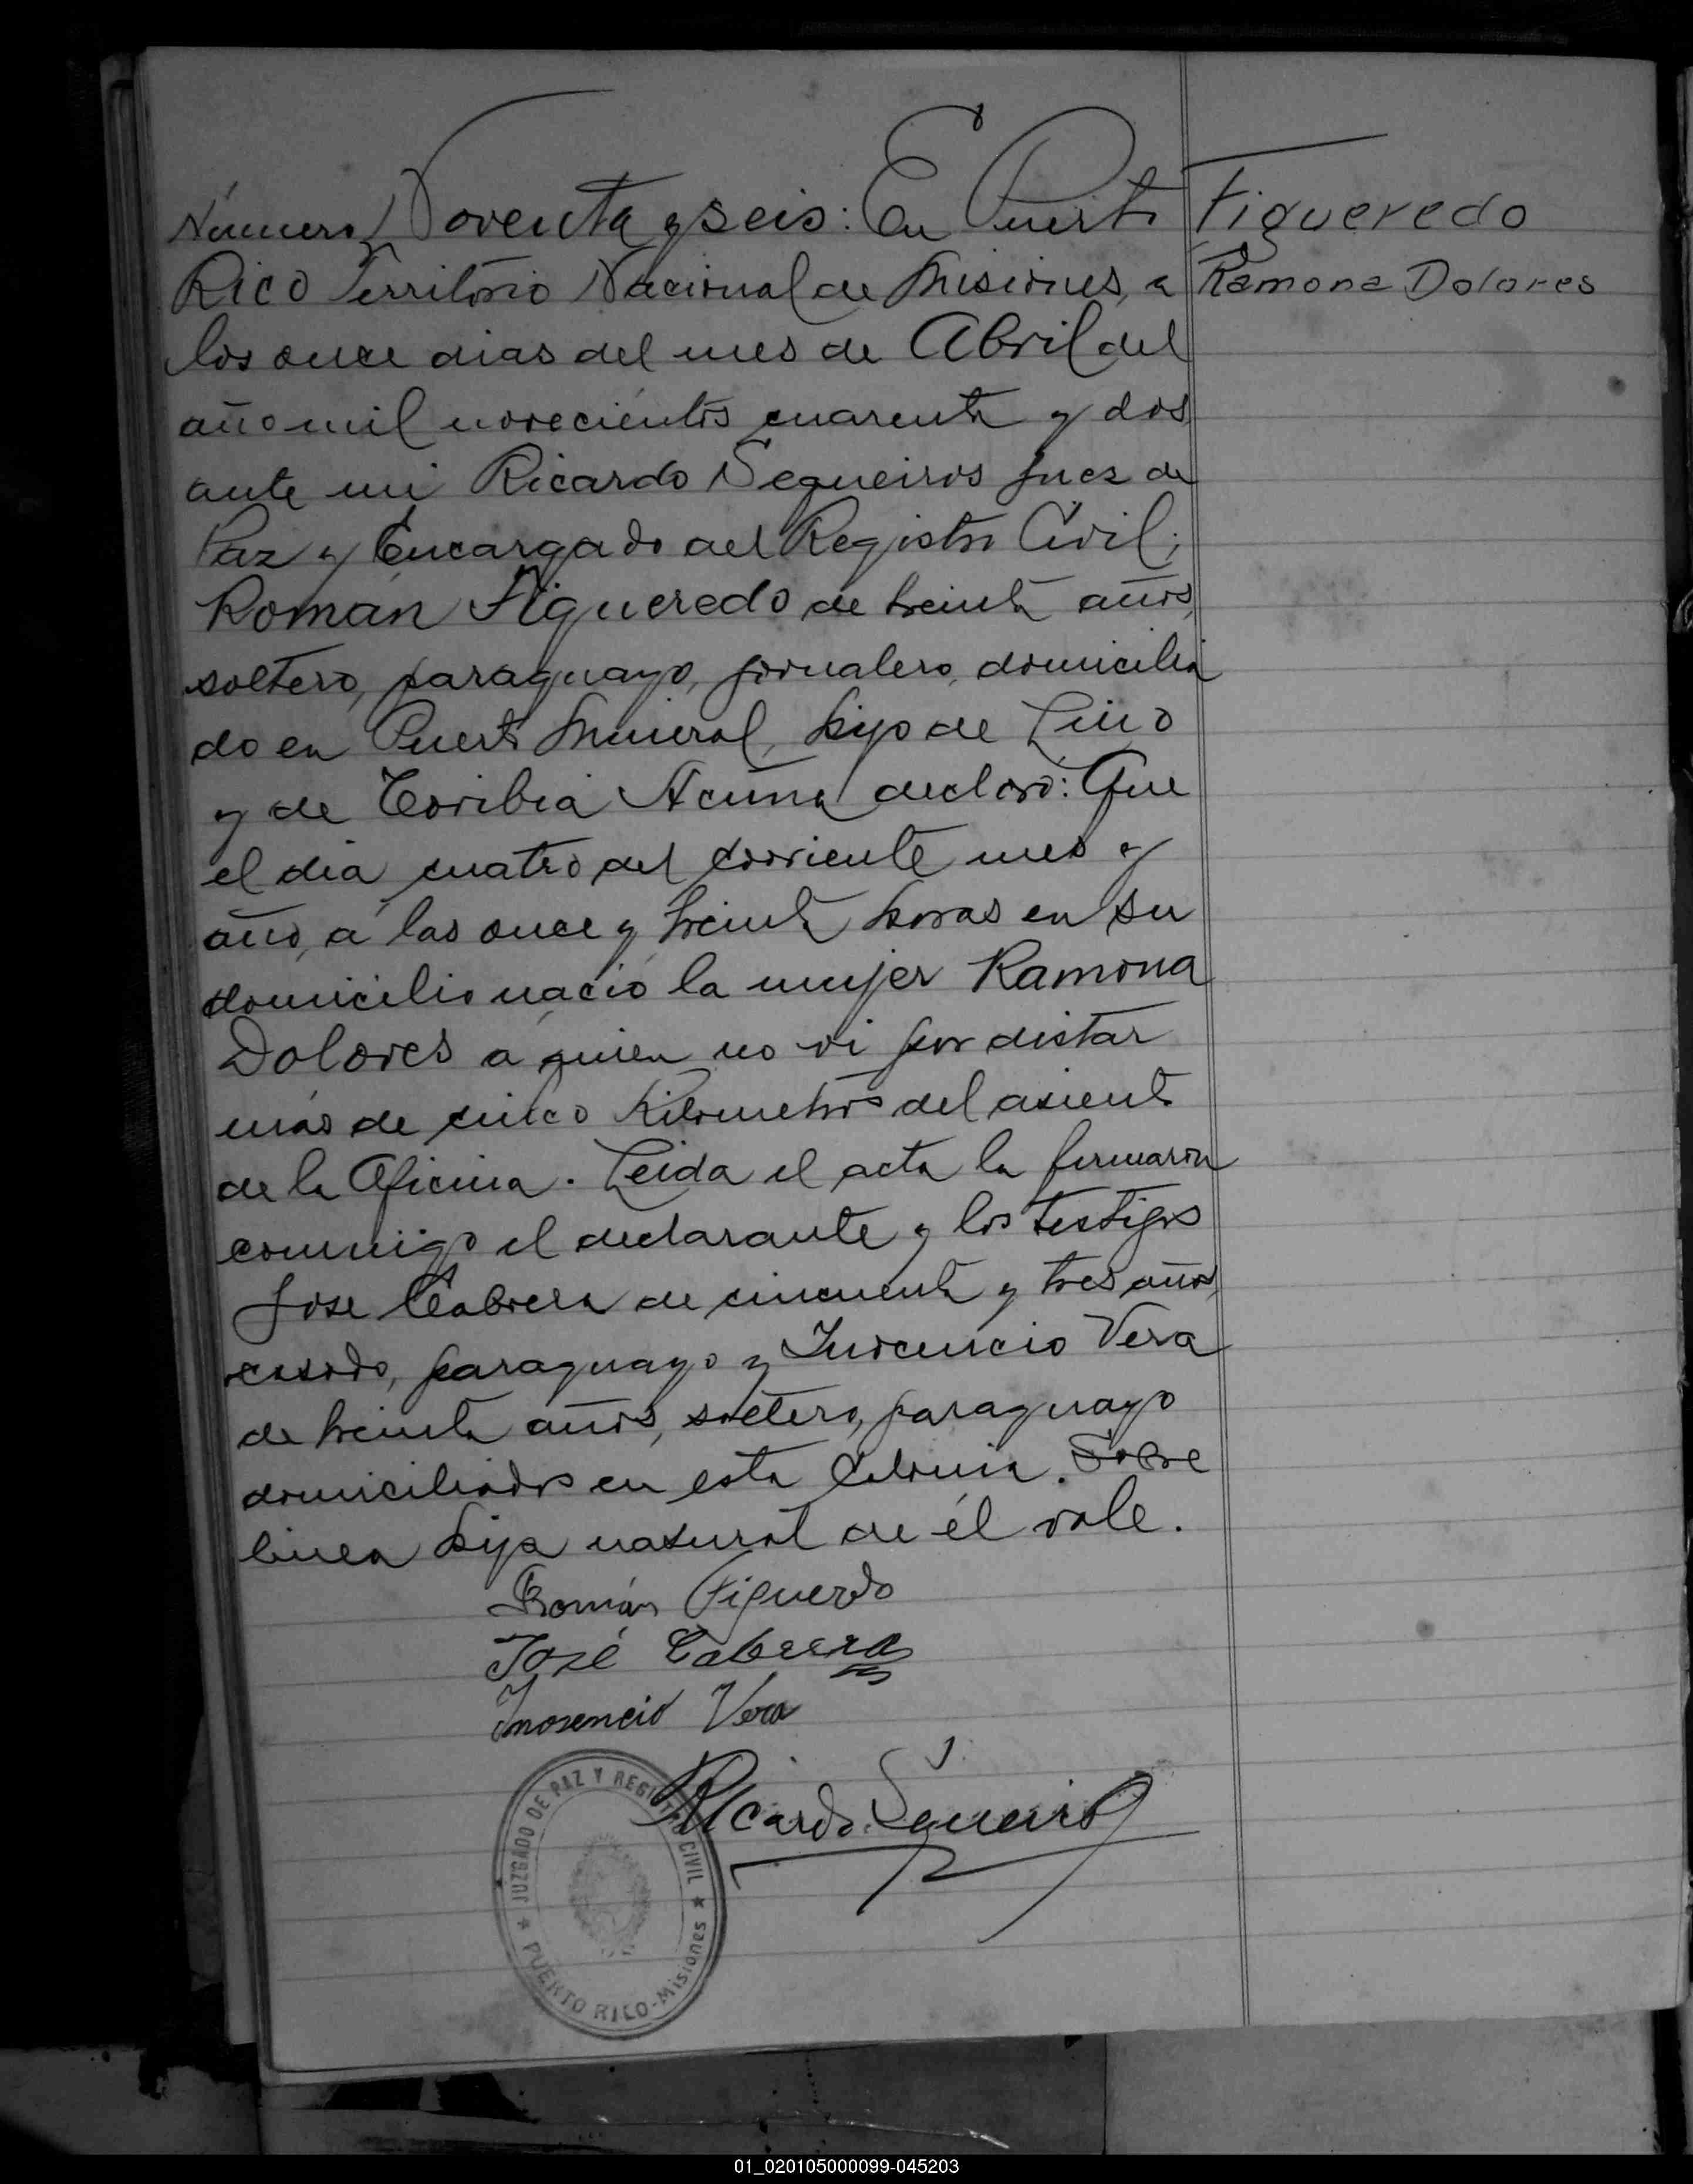 Número Noventa y seis: En Puerto
Rico Territorio Nacional de Misiones, a
los once dias del mes de Abril del
año mil novecientos cuarenta y dos
ante mi Ricardo Sequeiros Juez de
Paz y Encargado del Registro Civil;
Román Figueredo de treinta años,
soltero, paraguayo, jornalero, domicilia
do en Puerto Mineral, hijo de Lino
y de Toribia Acuña declaró: Que
el dia cuatro del corriente mes y
año, a las once y treinta horas en su
domicilio nació la mujer Ramona
Dolores a quien no vi por distar
más de cinco Kilometros del asiento
de la Oficina. Leida el acta la firmaron
conmigo el declarante y los testigos
Jose Cabrera de cincuenta y tres años,
casado, paraguayo y Inocencio Vera
de treinta años, soltero, paraguayo
domiciliados en esta Colonia. Sobre
linea hija natural de él vale.
Román Figueredo
José Cabrera
Inosencio Vera
Ricardo Sequeiros
JUZGADO DE PAZ Y REGISTRO CIVIL
PUERTO RICO-Misiones
Figueredo
Ramona Dolores
01_020105000099-045203